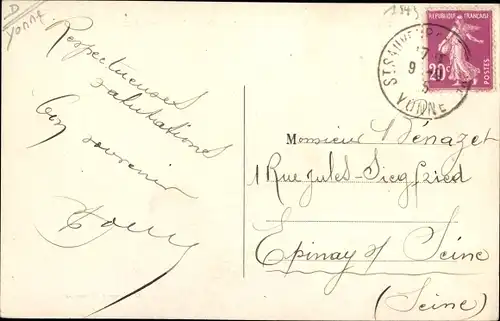 D
Yonne
Respectueuses
salutations
Bon souvenir
1945
REPUBLIQUE FRANÇAISE
20c
POSTES
ST SAUVEUR
YONNE
Monsieur Bénazet
1 Rue Jules-Siegfried
Epinay s/ Seine
(Seine)